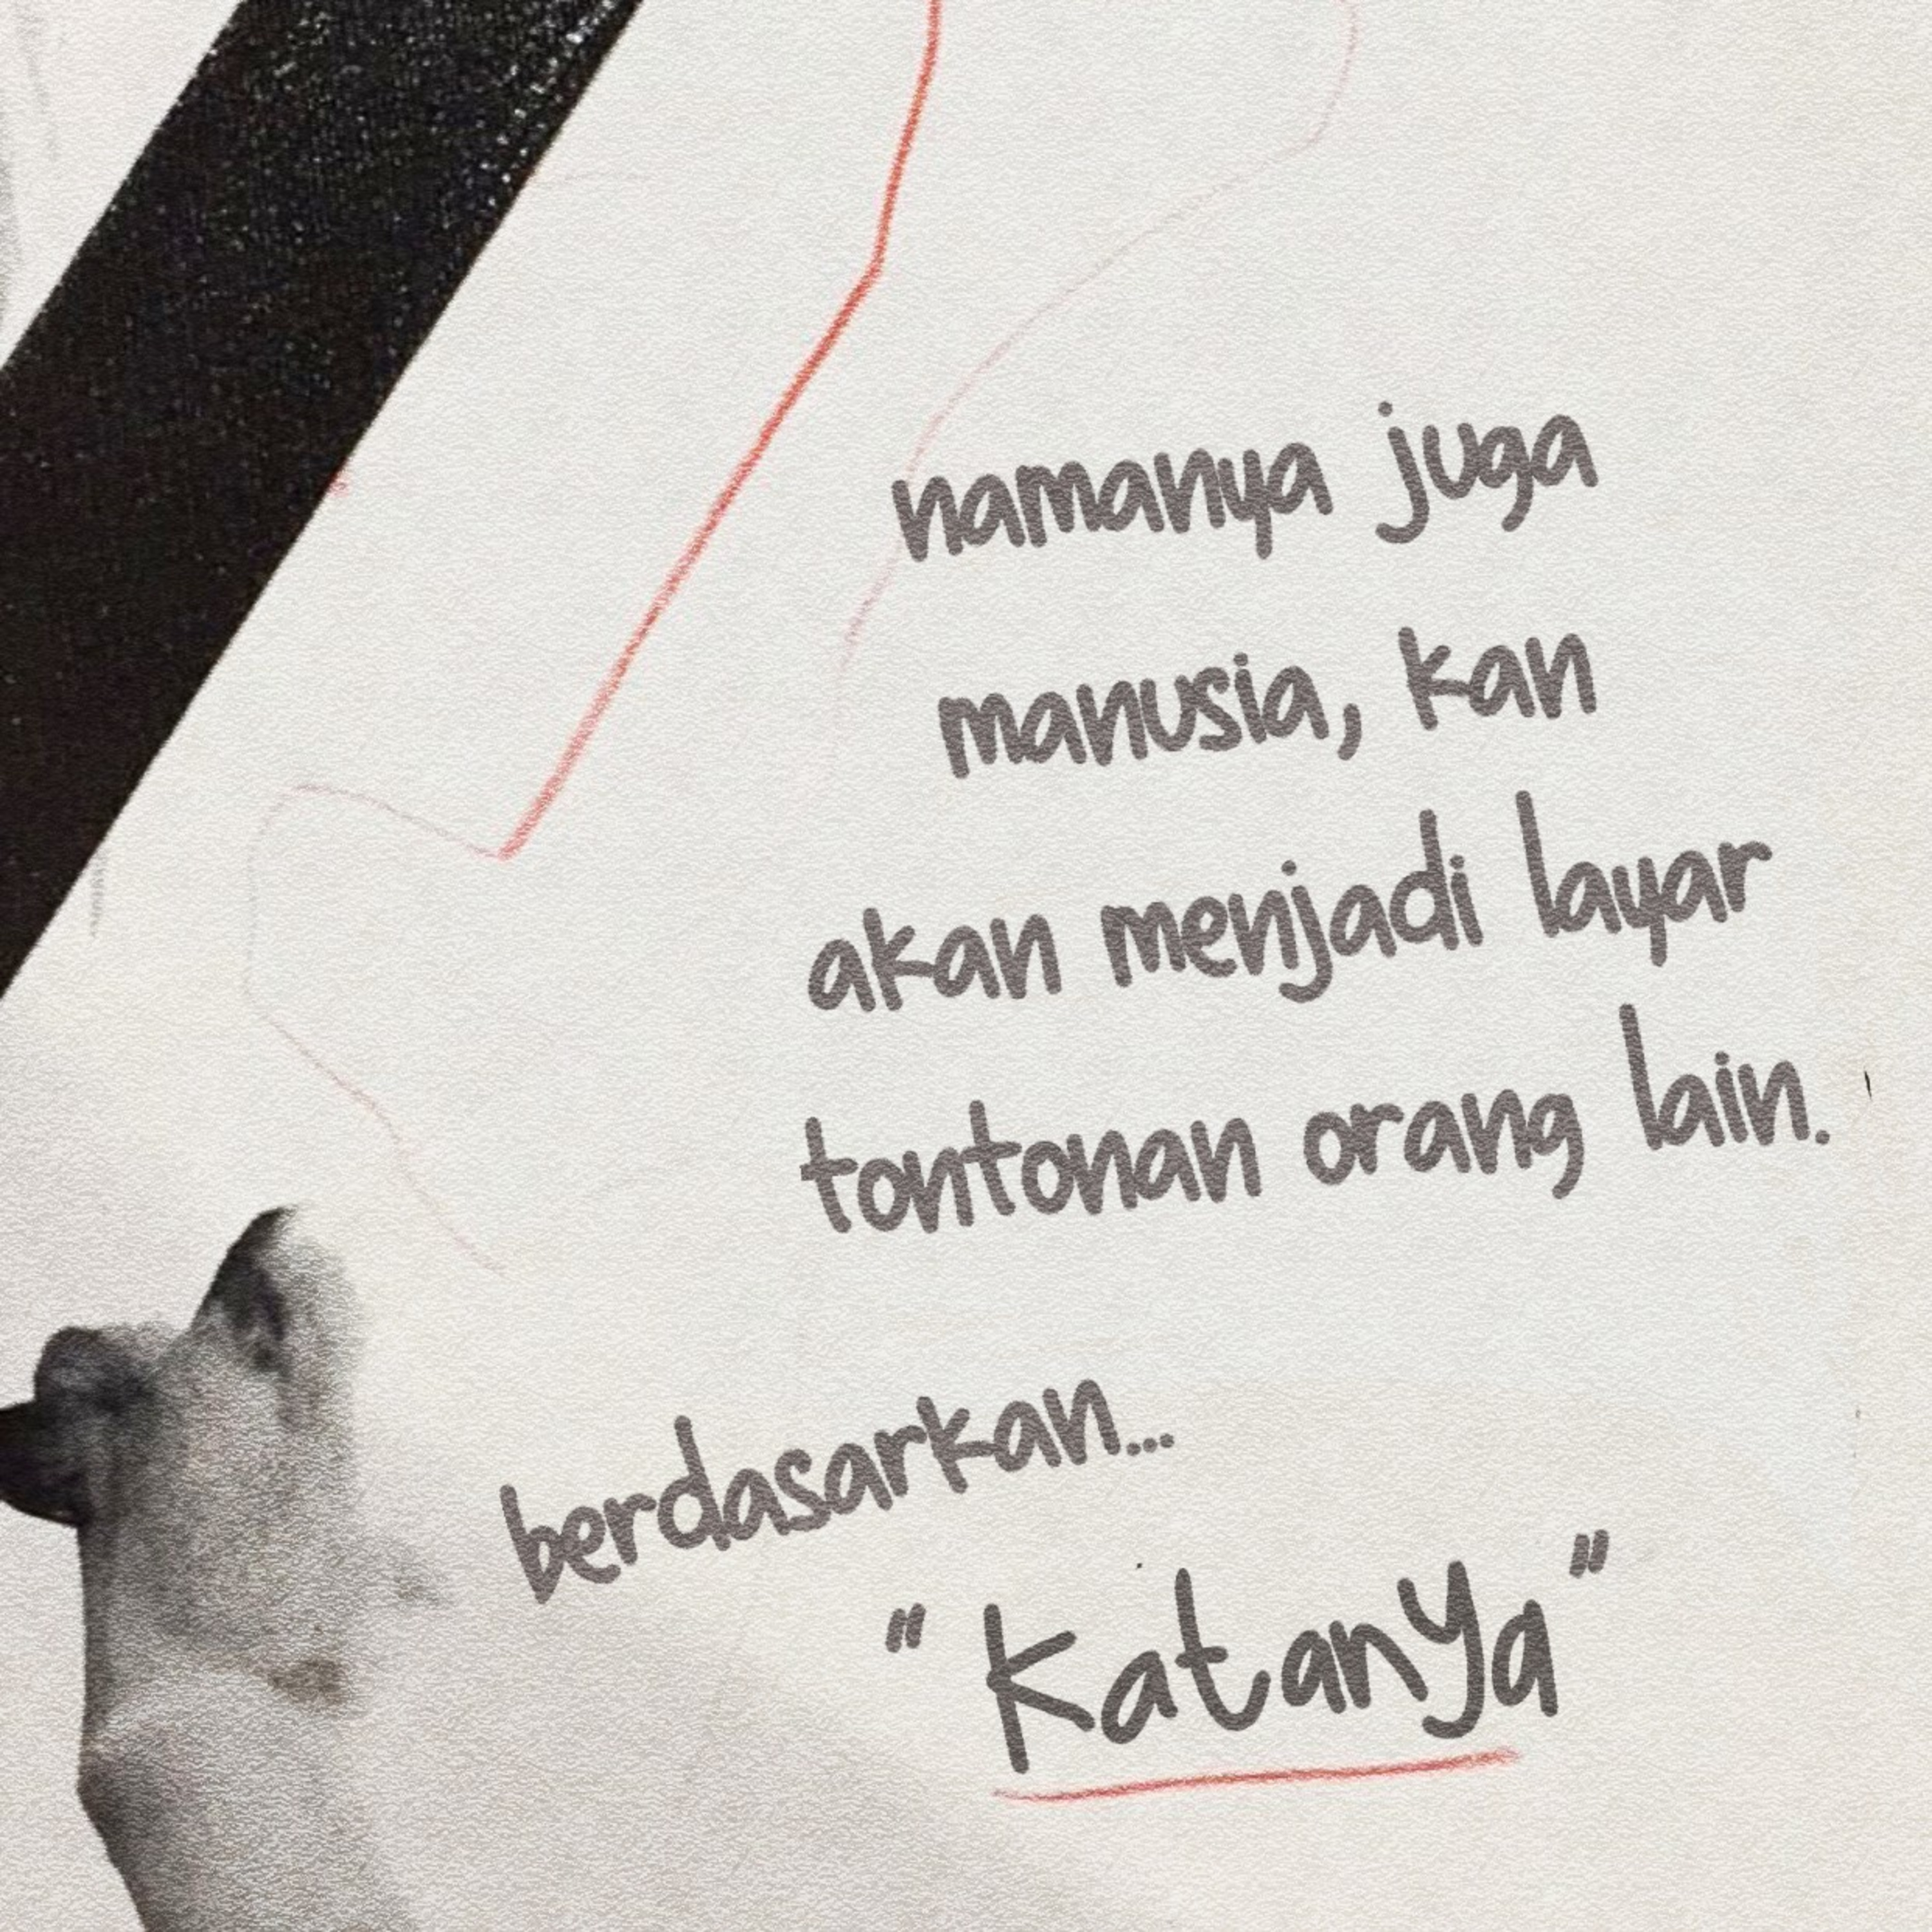 namanya juga
manusia, kan
akan menjadi layar
tontonan orang lain.
berdasarkan...
"Katanya"